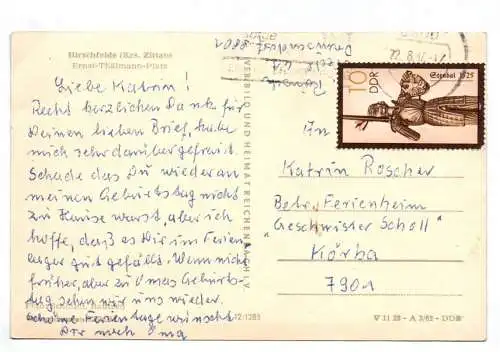 Hirschfelde (Krs. Zittau)
Ernst-Thälmann-Platz
Liebe Katrin!
Recht herzlichen Dank für
Deinen lieben Brief, habe
mich sehr darüber gefreut.
Schade das Du wieder an
meinen Geburtstag nicht
zu Hause warst, aber ich
hoffe, daß es Dir im Ferien
lager gut gefällt. Wenn nicht
früher, aber zu Omas Geburts-
tag sehn wir uns wieder.
schöne Ferientage wünscht
Dir noch
VERBILD UND HEIMAT REICHENBACH I. V.
10
DDR
Stendal 1525
An
Katrin Roscher
Betr. Ferienheim
"Geschwister Scholl"
Körba
7901
V 11 28 - A 3/65 - DDR